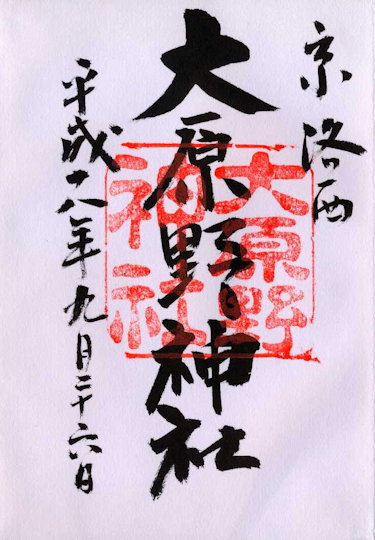 京洛西
大原野神社
大原野
神社
平成二八年九月二十六日